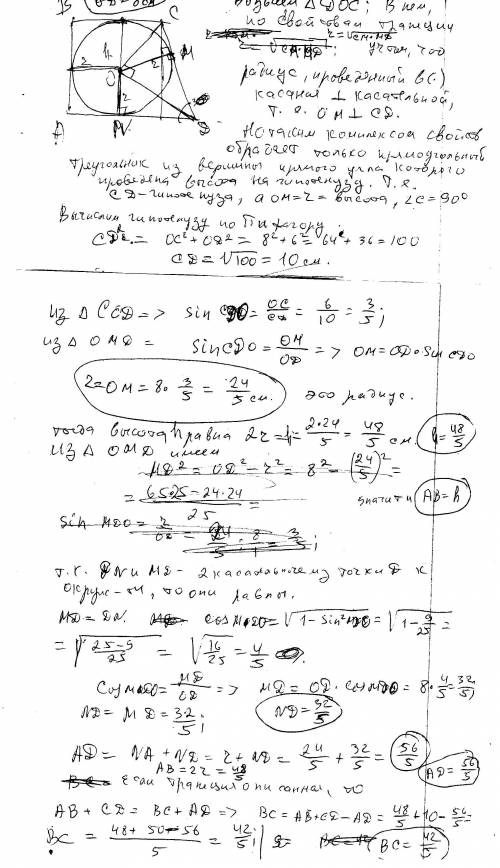 Возьмем △DOC; В нем,
по свойствам трапеции
r = √CM·MD; учтем, что
радиус, проведенный в(с)
касания ⊥ касательной,
т.е. OM ⊥ CD.
свойств
обладает только прямоугольный
треугольник из вершины прямого угла которого
проведена высота на гипотенузу. Т.е.
CD - гипотенуза, а OM = r = высота, ∠C = 90°
Вычислим гипотенузу по Пифагору.
CD² = OC² + OD² = 8² + 6² = 64 + 36 = 100
CD = √100 = 10 см.
Из △ COD => sin CDO = OC/CD = 6/10 = 3/5;
из △ OMD = sin CDO = OM/OD => OM = OD·sin CDO
r = OM = 8·3/5 = 24/5 см. это радиус.
тогда высота h равна 2r = h = 2·24/5 = 48/5 см. h = 48/5
Из △ OMD имеем
MD² = OD² - r² = 8² - (24/5)² =
= 65·25 - 24·24/25 = значит и AB = h
sin MDO = r/OD = 24/5 : 8/1 = 3/5;
т.к. DN и MD - 2 касательные из точки D к
окруж-ти, то они равны.
MD = DN. cos MDO = √1 - sin² MDO = √1 - 9/25 =
= √25-9/25 = √16/25 = 4/5
Cos MDO = MD/OD => MD = OD·cos MDO = 8·4/5 = 32/5;
ND = MD = 32/5; ND = 32/5
AD = NA + ND = r + ND = 24/5 + 32/5 = 56/5
AB = 2r = 48/5 AD = 56/5
Если трапеция описанная, то
AB + CD = BC + AD => BC = AB + CD - AD = 48/5 + 10 - 56/5 =
BC = 48 + 50 - 56/5 = 42/5; BC = 42/5
B
C
M
h
r
r
O
r
A
N
D